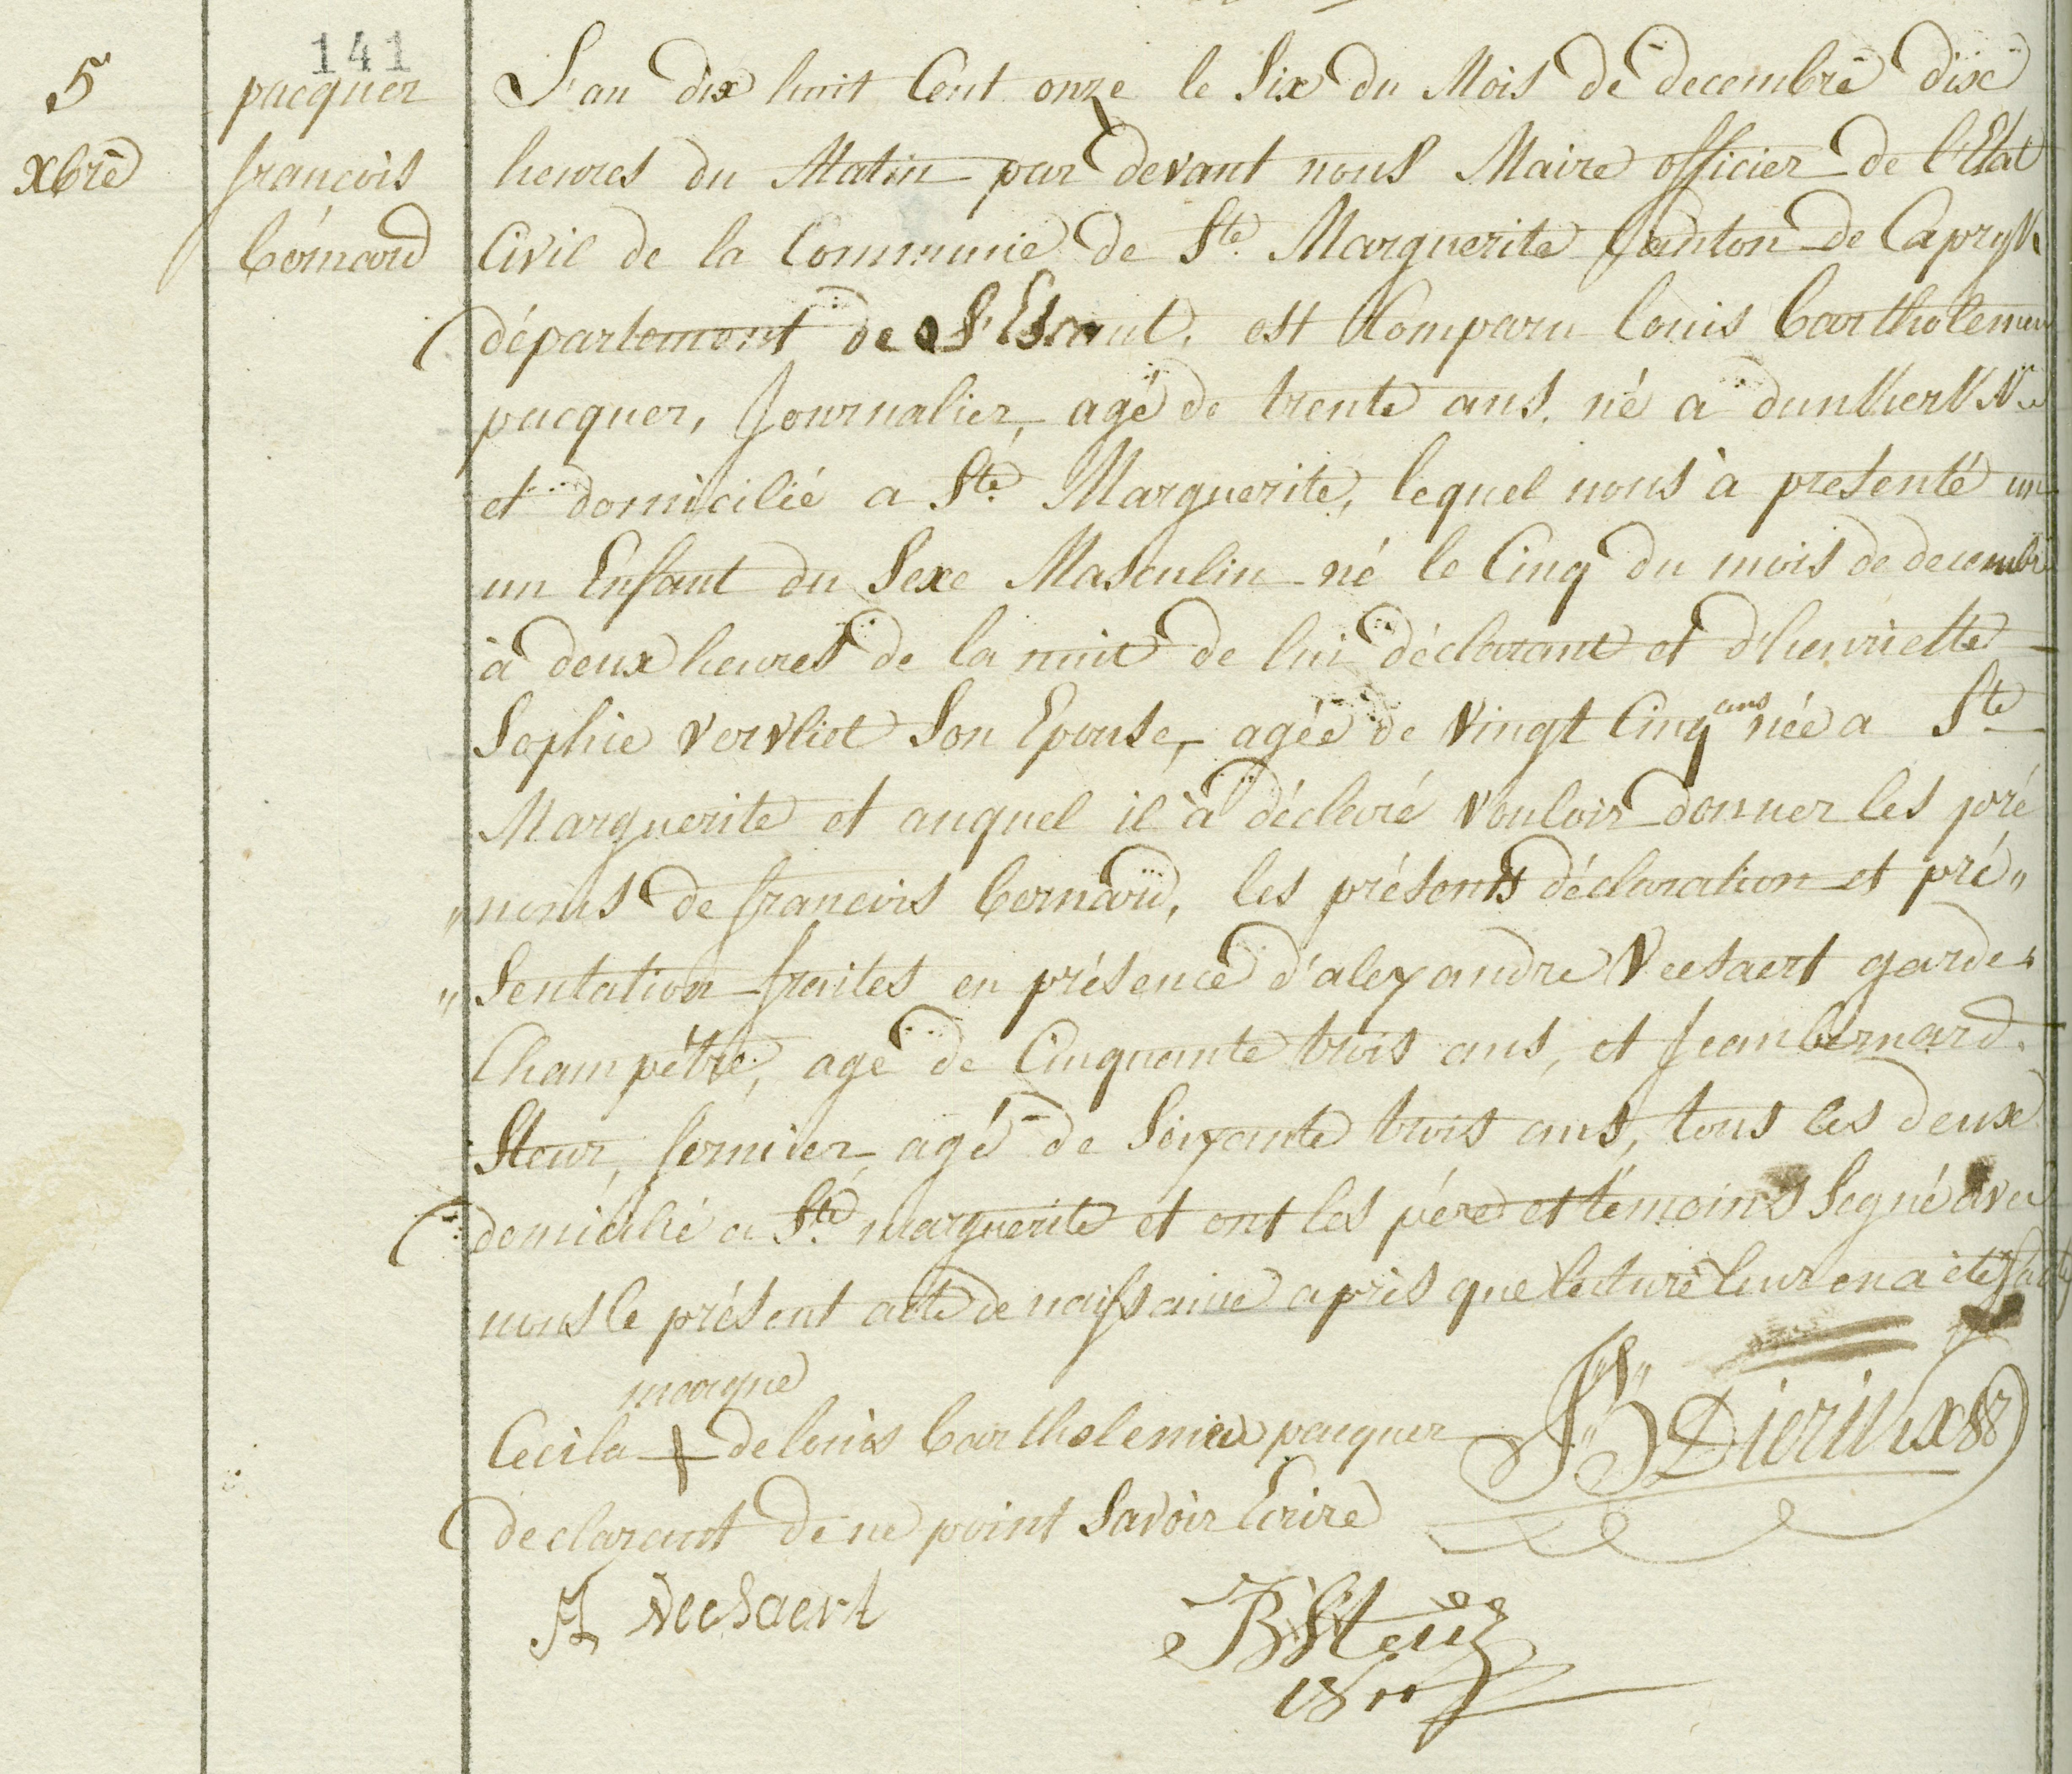 141
5
xbre
pacquer
francois
bernard
L'an dix huit Cent onze le Six du Mois de decembre dixe
heures du Matin par devant nous Maire officier de l'Etat
Civil de la Commune de Ste. Marguerite Canton de Capryk
département de L'Escaut. est Comparu louis bartholemeu
pacquer, Journalier, agé de trente ans. né a dunkerkke
et domicilié a Ste. Marguerite, lequel nous à presenté un
un Enfant du Sexe Masculin né le Cinq du mois de decembre
à deux heures de la nuit de lui déclarant et d'henriette
Sophie vervliet Son Epouse, agée de vingt Cinq ans née a Ste
Marguerite et auquel il à déclaré vouloir donner les pré
„noms de francois bernard, les présents déclaration et pré„
„Sentation faites en présence d'alexandre Veesaert garde
Champêtre, agé de Cinquante trois ans, et Jean bernard
Steur, fermier, agé de Soixante trois ans, tous les deux
domicilié a Ste. marguerite et ont les père et témoins Segné avec
nous le présent acte de naissance après que lecture leur en a été faite
marque
Ceci la + de louis bartholemeu pacquer
declarant de ne point Savoir Ecrire
JB Dierickx
A Veesaert
JB Steur
1811